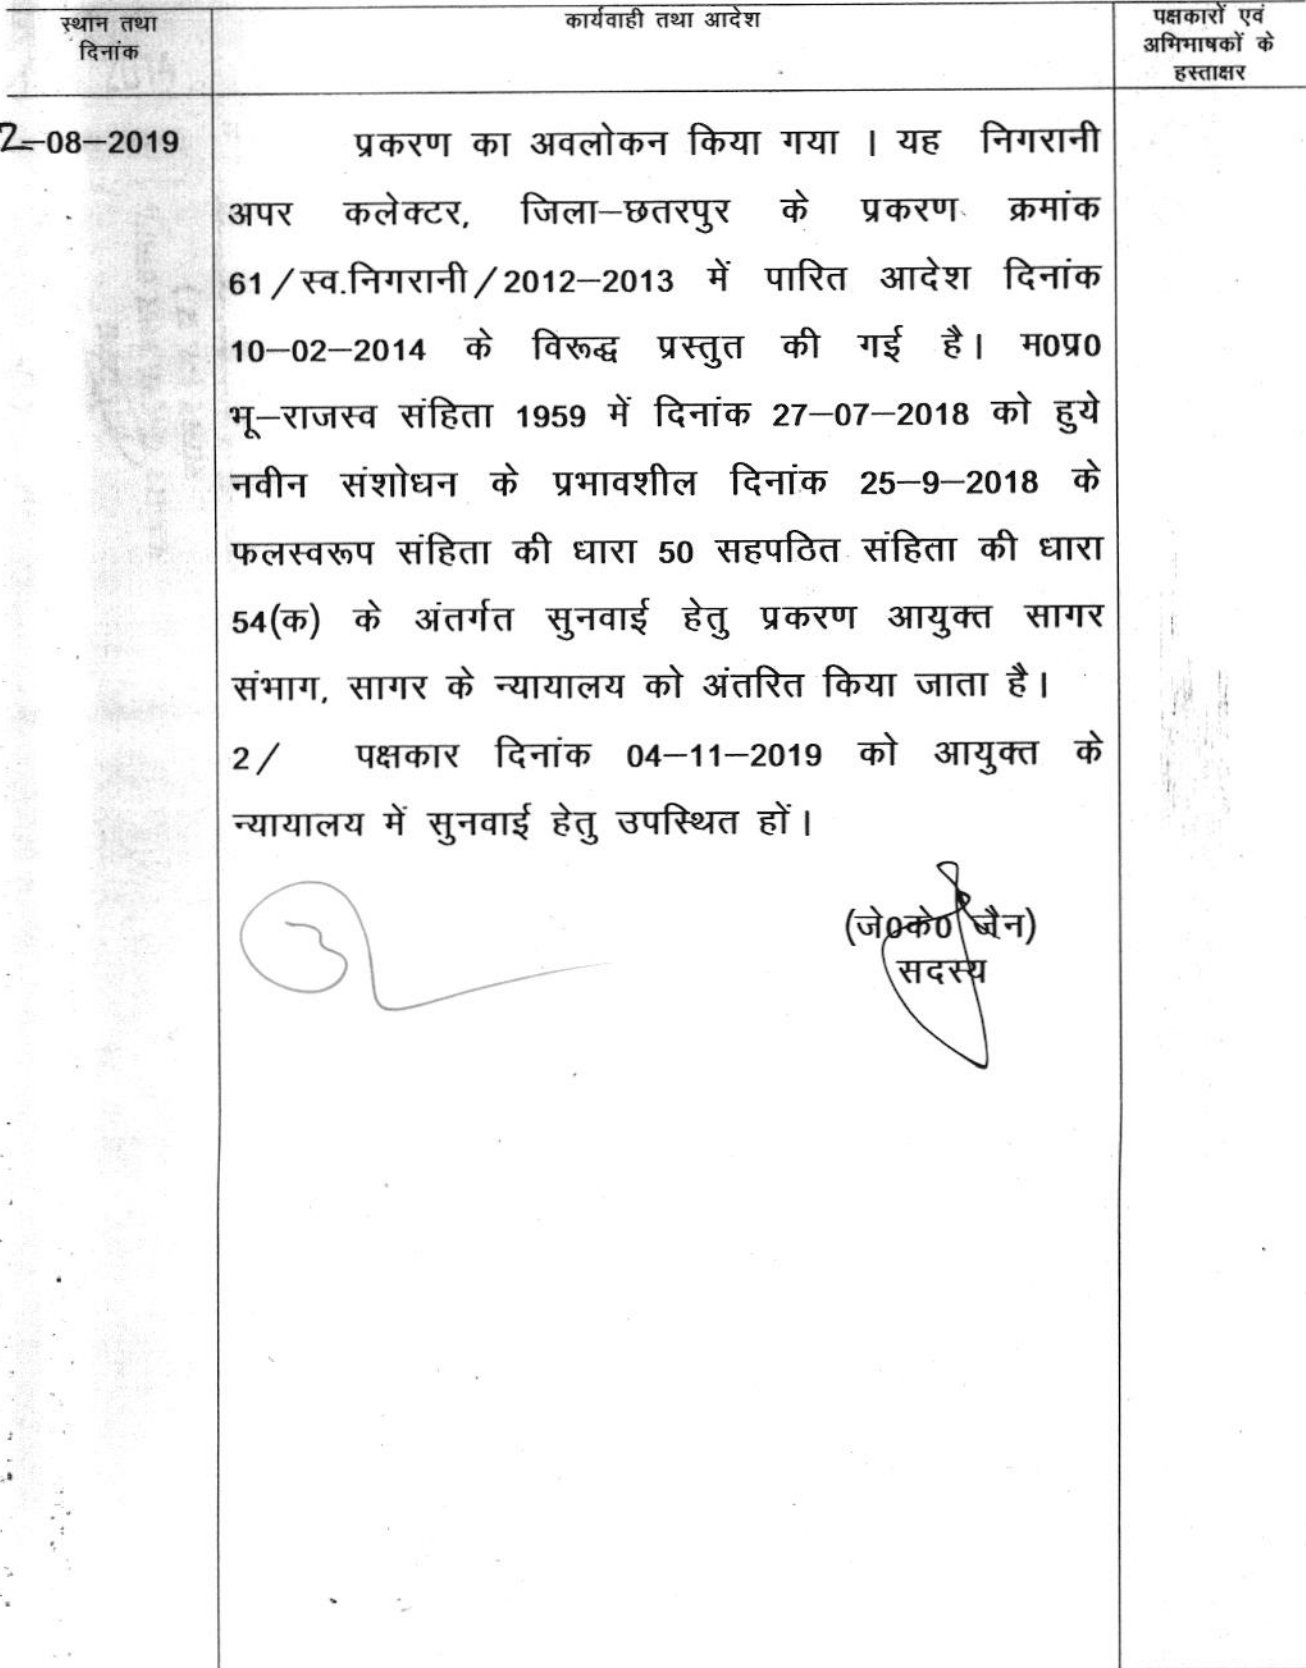 स्थान तथा
दिनांक
कार्यवाही तथा आदेश
पक्षकारों एवं
अभिभाषकों के
हस्ताक्षर
2-08-2019
प्रकरण का अवलोकन किया गया । यह निगरानी
अपर कलेक्टर, जिला-छतरपुर के प्रकरण क्रमांक
61/स्व.निगरानी/2012-2013 में पारित आदेश दिनांक
10-02-2014 के विरूद्ध प्रस्तुत की गई है। म0प्र0
भू-राजस्व संहिता 1959 में दिनांक 27-07-2018 को हुये
नवीन संशोधन के प्रभावशील दिनांक 25-9-2018 के
फलस्वरूप संहिता की धारा 50 सहपठित संहिता की धारा
54(क) के अंतर्गत सुनवाई हेतु प्रकरण आयुक्त सागर
संभाग, सागर के न्यायालय को अंतरित किया जाता है।
2/ पक्षकार दिनांक 04-11-2019 को आयुक्त के
न्यायालय में सुनवाई हेतु उपस्थित हों।
(जे0के0 जैन)
सदस्य